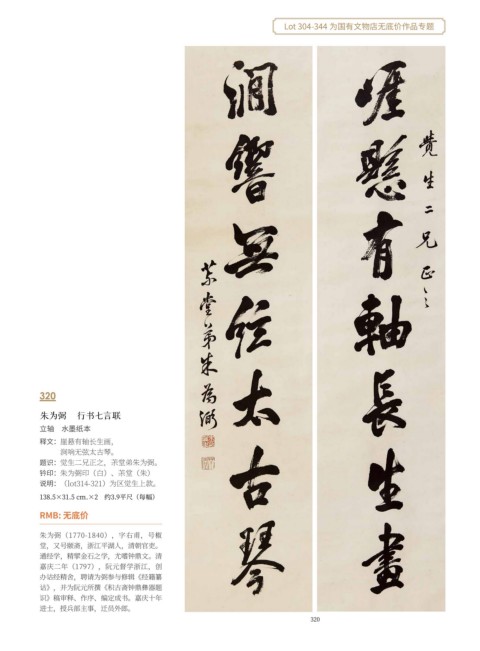 Lot 304-344 为国有文物店无底价作品专题
崖懸有軸長生畫
覺生二兄正之
澗響無弦太古琴
茮堂弟朱為弼
320
朱为弼 行书七言联
立轴 水墨纸本
释文：崖悬有轴长生画，
涧响无弦太古琴。
题识：觉生二兄正之，茶堂弟朱为弼。
钤印：朱为弼印（白）、茶堂（朱）
说明：（lot314-321）为区觉生上款。
138.5×31.5 cm.×2 约3.9平尺（每幅）
RMB: 无底价
朱为弼（1770-1840），字右甫，号椒
堂，又号颐斋，浙江平湖人，清朝官吏。
通经学，精擘金石之学，尤嗜钟鼎文。清
嘉庆二年（1797），阮元督学浙江，创
办诂经精舍，聘请为弼参与修辑《经籍纂
诂》，并为阮元所撰《积古斋钟鼎彝器题
识》稿审释、作序、编定成书。嘉庆十年
进士，授兵部主事，迁员外郎。
320